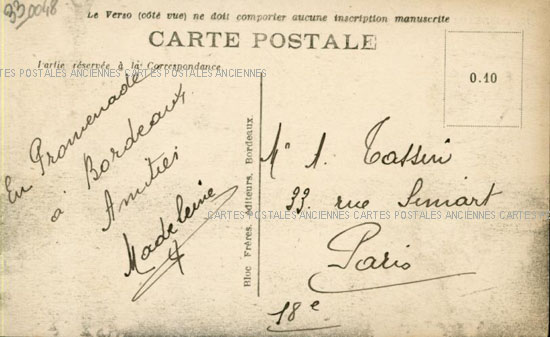 330048
Le Verso (côté vue) ne doit comporter aucune inscription manuscrite
CARTE POSTALE
Partie réservée à la Correspondance
CARTES POSTALES ANCIENNES CARTES POSTALES ANCIENNES
0.10
En Promenade
à Bordeaux
Amitiés
Madeleine
Bloc Frères, éditeurs, Bordeaux.
Mr A. Tassini
33. rue Simart
CARTES POSTALES ANCIENNES CARTES POSTALES ANCIENNES CARTES
Paris
18e